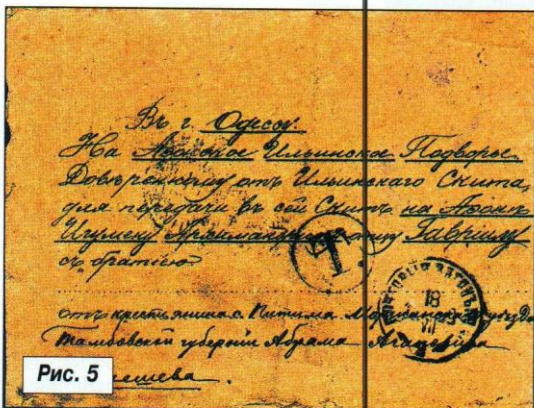 Въ г. Одессу.
На Аѳонское Ильинское Подворье
Довѣренному отъ Ильинскаго Скита,
для передачи въ сей Скитъ на Аѳонъ
Игумену Архимандриту отцу Гавріилу
съ братіею
Т
18
VII
отъ крестьянина с. Питима Моршанскаго уѣзда
Тамбовской губерніи Абрама
Рис. 5